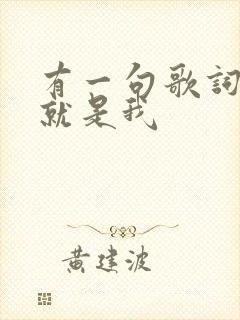 有一句歌詞
就是我
黄建波